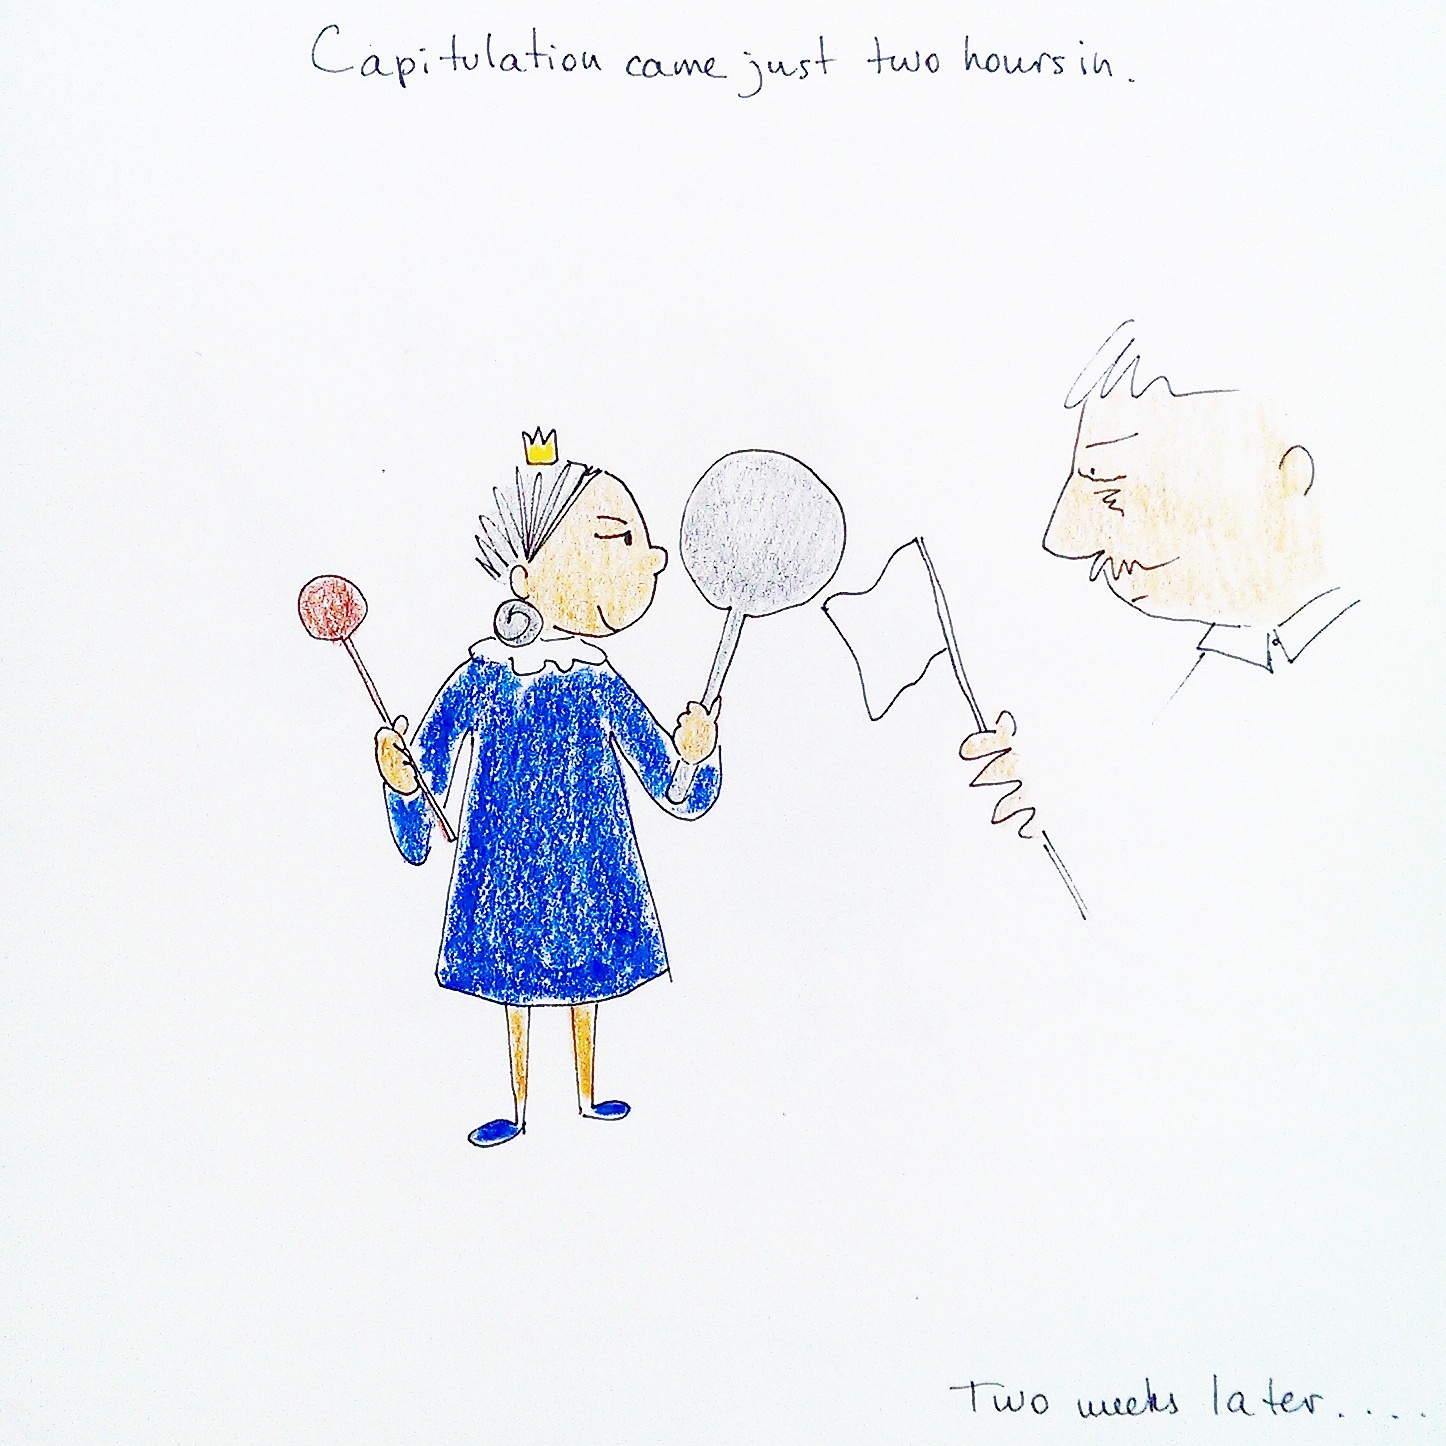 Capitulation came just two hours in.
Two weeks later....